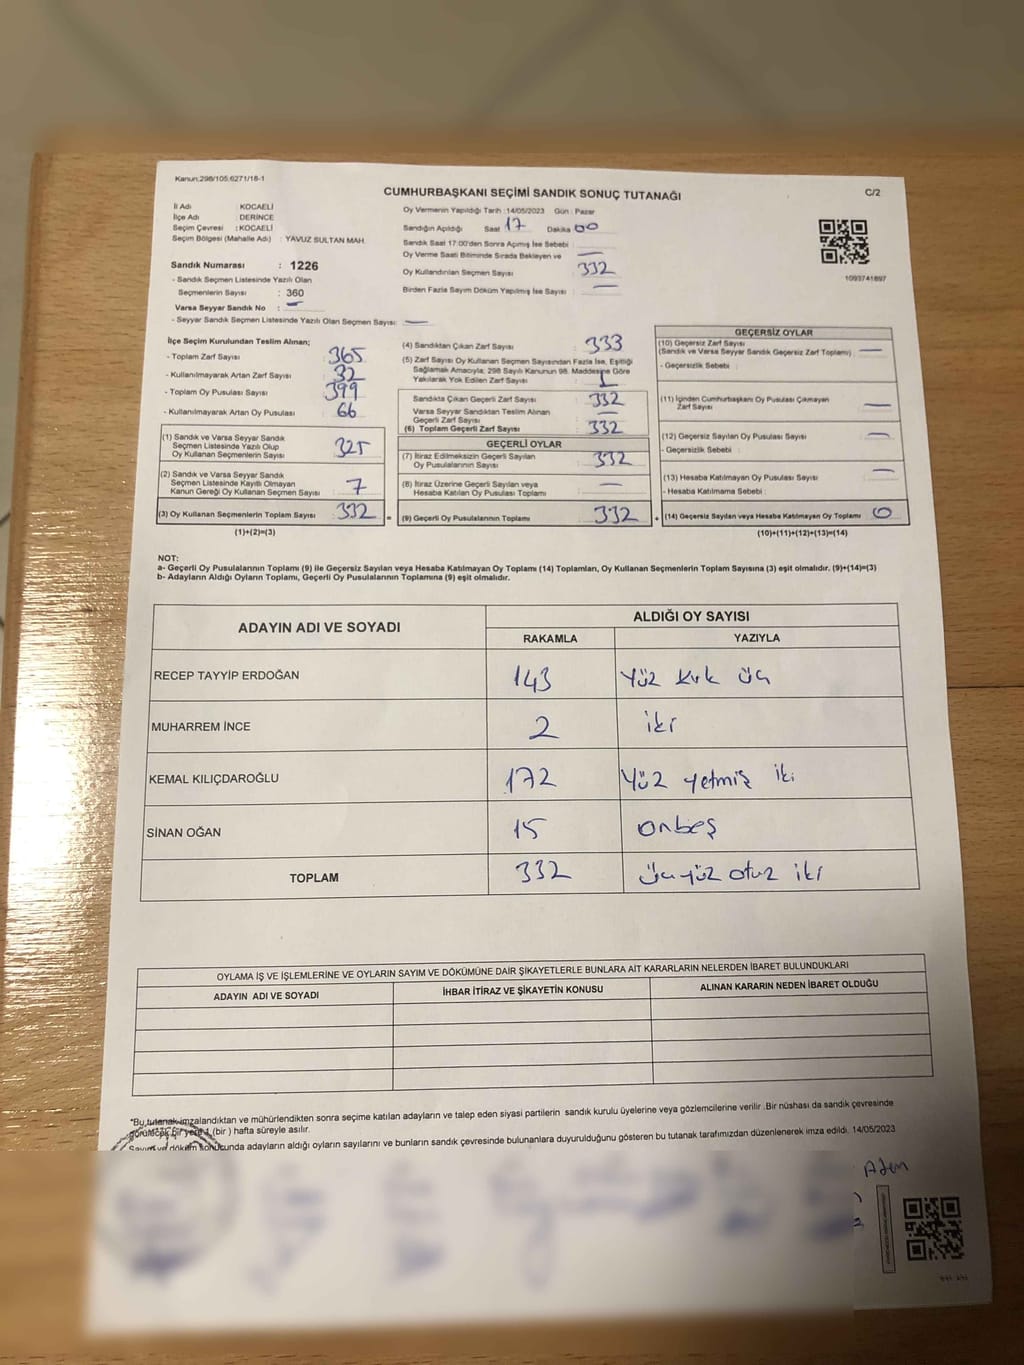 Kanun:298/105.6271/18-1
CUMHURBAŞKANI SEÇİMİ SANDIK SONUÇ TUTANAĞI
C/2
İl Adı KOCAELİ
İlçe Adı DERİNCE
Seçim Çevresi : KOCAELİ
Seçim Bölgesi (Mahalle Adı) : YAVUZ SULTAN MAH.
Sandık Numarası : 1226
- Sandık Seçmen Listesinde Yazılı Olan
Seçmenlerin Sayısı : 360
Varsa Seyyar Sandık No : —
- Seyyar Sandık Seçmen Listesinde Yazılı Olan Seçmen Sayısı: —
Oy Vermenin Yapıldığı Tarih :14/05/2023 Gün : Pazar
Sandığın Açıldığı Saat 17 Dakika 00
Sandık Saat 17:00'den Sonra Açılmış İse Sebebi :
Oy Verme Saati Bitiminde Sırada Bekleyen ve —
Oy Kullandırılan Seçmen Sayısı 332
Birden Fazla Sayım Döküm Yapılmış İse Sayısı : —
1093741897
İlçe Seçim Kurulundan Teslim Alınan;
- Toplam Zarf Sayısı : 365
- Kullanılmayarak Artan Zarf Sayısı : 32
- Toplam Oy Pusulası Sayısı : 399
- Kullanılmayarak Artan Oy Pusulası : 66
(1) Sandık ve Varsa Seyyar Sandık
Seçmen Listesinde Yazılı Olup
Oy Kullanan Seçmenlerin Sayısı : 325
(2) Sandık ve Varsa Seyyar Sandık
Seçmen Listesinde Kayıtlı Olmayan
Kanun Gereği Oy Kullanan Seçmen Sayısı : 7
(3) Oy Kullanan Seçmenlerin Toplam Sayısı : 332
(1)+(2)=(3)
(4) Sandıktan Çıkan Zarf Sayısı : 333
(5) Zarf Sayısı Oy Kullanan Seçmen Sayısından Fazla İse, Eşitliği
Sağlamak Amacıyla; 298 Sayılı Kanunun 98. Maddesine Göre
Yakılarak Yok Edilen Zarf Sayısı : 1
Sandıkta Çıkan Geçerli Zarf Sayısı : 332
Varsa Seyyar Sandıktan Teslim Alınan
Geçerli Zarf Sayısı : —
(6) Toplam Geçerli Zarf Sayısı : 332
GEÇERLİ OYLAR
(7) İtiraz Edilmeksizin Geçerli Sayılan
Oy Pusulalarının Sayısı : 332
(8) İtiraz Üzerine Geçerli Sayılan veya
Hesaba Katılan Oy Pusulası Toplamı : —
= (9) Geçerli Oy Pusulalarının Toplamı : 332
GEÇERSİZ OYLAR
(10) Geçersiz Zarf Sayısı
(Sandık ve Varsa Seyyar Sandık Geçersiz Zarf Toplamı) : —
- Geçersizlik Sebebi :
(11) İçinden Cumhurbaşkanı Oy Pusulası Çıkmayan
Zarf Sayısı : —
(12) Geçersiz Sayılan Oy Pusulası Sayısı : —
- Geçersizlik Sebebi :
(13) Hesaba Katılmayan Oy Pusulası Sayısı : —
- Hesaba Katılmama Sebebi :
+ (14) Geçersiz Sayılan veya Hesaba Katılmayan Oy Toplamı : 0
(10)+(11)+(12)+(13)=(14)
NOT:
a- Geçerli Oy Pusulalarının Toplamı (9) ile Geçersiz Sayılan veya Hesaba Katılmayan Oy Toplamı (14) Toplamları, Oy Kullanan Seçmenlerin Toplam Sayısına (3) eşit olmalıdır. (9)+(14)=(3)
b- Adayların Aldığı Oyların Toplamı, Geçerli Oy Pusulalarının Toplamına (9) eşit olmalıdır.
ADAYIN ADI VE SOYADI ALDIĞI OY SAYISI
RAKAMLA YAZIYLA
RECEP TAYYİP ERDOĞAN 143 Yüz kırk üç
MUHARREM İNCE 2 iki
KEMAL KILIÇDAROĞLU 172 Yüz yetmiş iki
SİNAN OĞAN 15 onbeş
TOPLAM 332 üçyüz otuz iki
OYLAMA İŞ VE İŞLEMLERİNE VE OYLARIN SAYIM VE DÖKÜMÜNE DAİR ŞİKAYETLERLE BUNLARA AİT KARARLARIN NELERDEN İBARET BULUNDUKLARI
ADAYIN ADI VE SOYADI İHBAR İTİRAZ VE ŞİKAYETİN KONUSU ALINAN KARARIN NEDEN İBARET OLDUĞU
"Bu tutanak imzalandıktan ve mühürlendikten sonra seçime katılan adayların ve talep eden siyasi partilerin sandık kurulu üyelerine veya gözlemcilerine verilir .Bir nüshası da sandık çevresinde
görülecek bir yere 1 (bir ) hafta süreyle asılır.
Sayım ve döküm sonucunda adayların aldığı oyların sayılarını ve bunların sandık çevresinde bulunanlara duyurulduğunu gösteren bu tutanak tarafımızdan düzenlenerek imza edildi. 14/05/2023